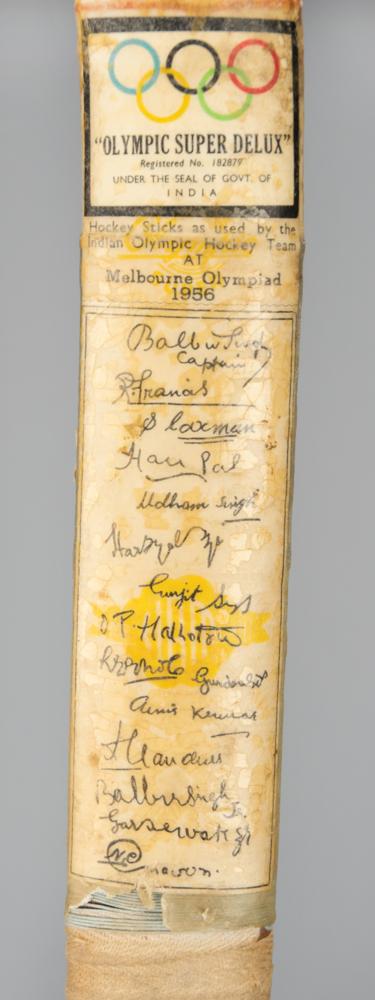 "OLYMPIC SUPER DELUX"
Registered No. 182879
UNDER THE SEAL OF GOVT. OF
INDIA
Hockey Sticks as used by the
Indian Olympic Hockey Team
AT
Melbourne Olympiad
1956
Balbir Singh
Captain
R. Francis
S laxman
Hari Pal
Udham Singh
O P Malhotra
Amir Kumar
Balbir Singh Jr.